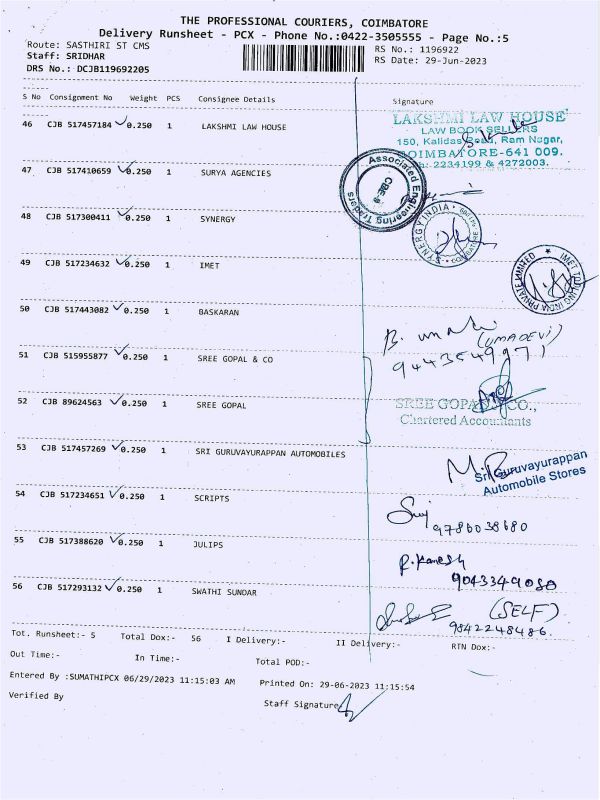 THE PROFESSIONAL COURIERS, COIMBATORE
Delivery Runsheet - PCX - Phone No.:0422-3505555 - Page No.:5
Route: SASTHIRI ST CMS
RS No.: 1196922
Staff: SRIDHAR
RS Date: 29-Jun-2023
DRS No.: DCJB119692205
S No Consignment No Weight PCS Consignee Details Signature
46 CJB 517457184 0.250 1 LAKSHMI LAW HOUSE
LAKSHMI LAW HOUSE
LAW BOOK SELLERS
150, Kalidas Road, Ram Nagar,
COIMBATORE-641 009.
Ph: 2234199 & 4272003.
47 CJB 517410659 0.250 1 SURYA AGENCIES
Associated Engineering Traders
CBE-9
48 CJB 517300411 0.250 1 SYNERGY
SYNERGY INDIA
COIMBATORE
49 CJB 517234632 0.250 1 IMET
IMET TOOLING INDIA PRIVATE LIMITED
50 CJB 517443082 0.250 1 BASKARAN
(UMADEVI)
9443549971
51 CJB 515955877 0.250 1 SREE GOPAL & CO
52 CJB 89624563 0.250 1 SREE GOPAL
SREE GOPAL & CO.,
Chartered Accountants
53 CJB 517457269 0.250 1 SRI GURUVAYURAPPAN AUTOMOBILES
Sri Guruvayurappan
Automobile Stores
54 CJB 517234651 0.250 1 SCRIPTS
9786038680
55 CJB 517388620 0.250 1 JULIPS
9043349080
56 CJB 517293132 0.250 1 SWATHI SUNDAR
(SELF)
9842248486.
Tot. Runsheet:- 5 Total Dox:- 56 I Delivery:- II Delivery:- RTN Dox:-
Out Time:- In Time:- Total POD:-
Entered By :SUMATHIPCX 06/29/2023 11:15:03 AM Printed On: 29-06-2023 11:15:54
Verified By Staff Signature